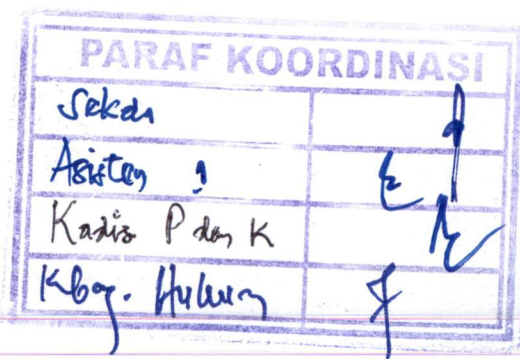 PARAF KOORDINASI
Sekda
Asisten 1
Kadis P dan K
Kbag. Hukum